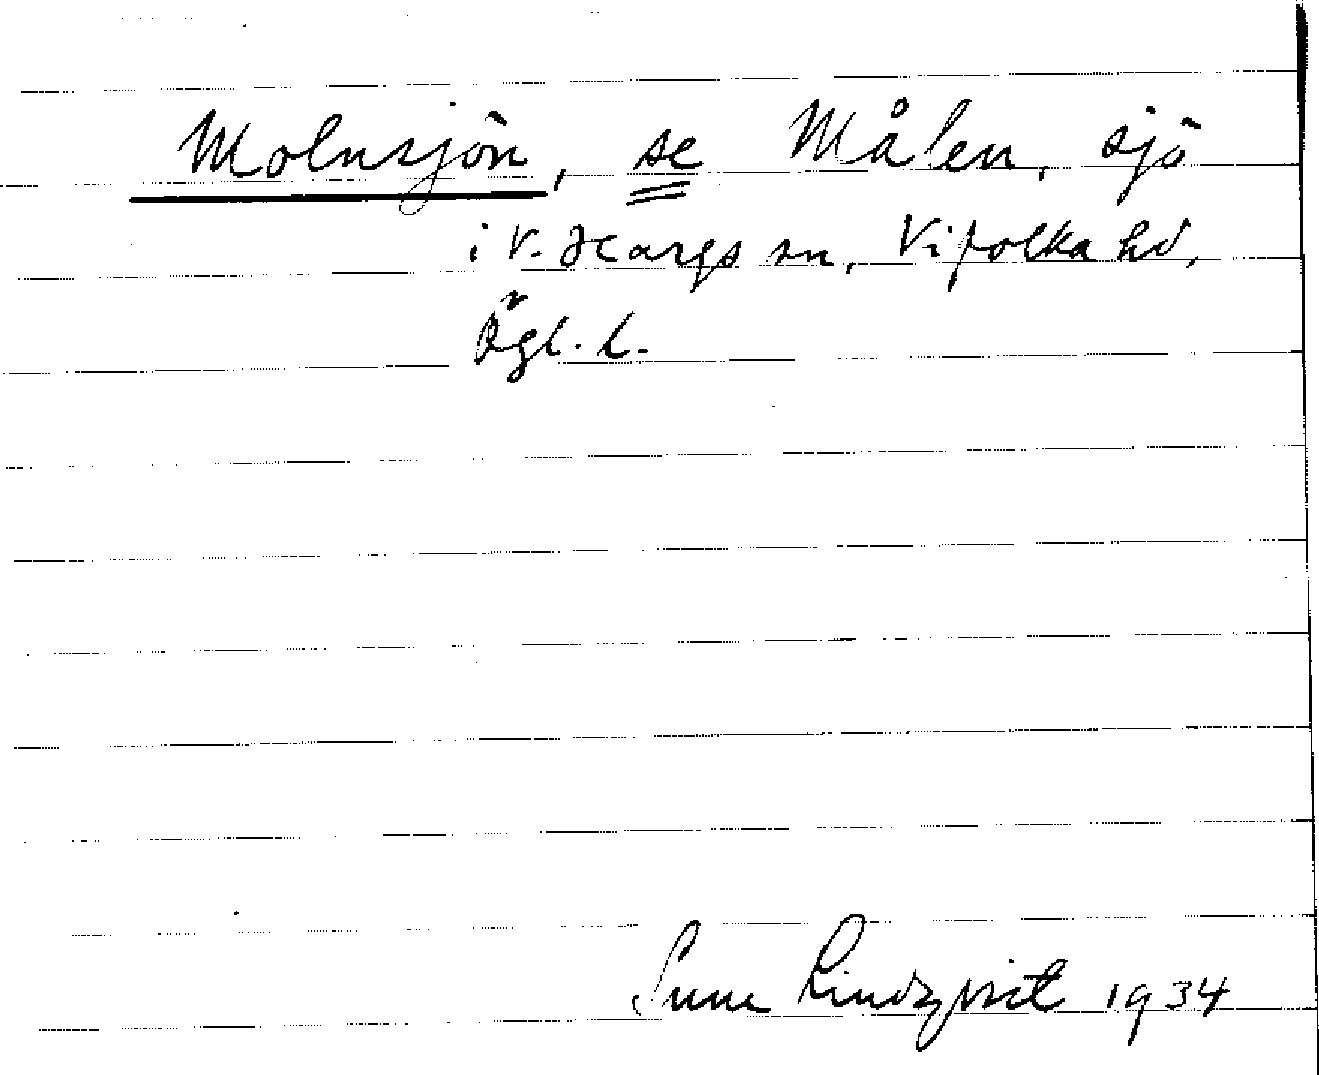 Molnsjön, se Målen, sjö
i V. Hargs sn, Vifolka hd,
Ögl. l.
Sune Lindqvist 1934